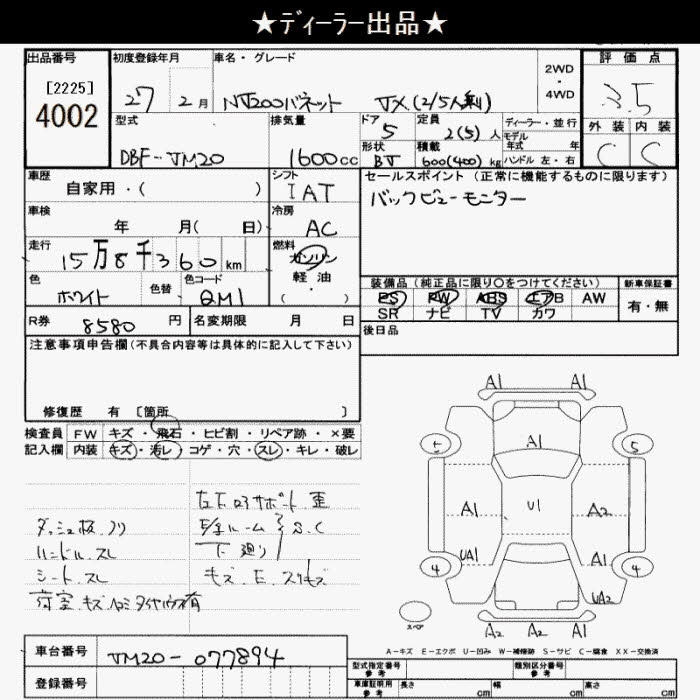 ★ディーラー出品★
出品番号 初度登録年月 車名・グレード 2WD・4WD 評価点
[2225]
4002
27年 2月 NV200バネット VX(2/5人乗) 3.5
型式 排気量 ドア 定員 ディーラー・並行 外装 内装
5 2(5)人 モデル年式 年
DBF-VM20 1600cc 形状 積載 ハンドル 左・右 C C
BV 600(400)kg
車歴 シフト セールスポイント(正常に機能するものに限ります)
自家用・( ) IAT バックビューモニター
車検 冷房
年 月( 日) AC
走行 燃料
15万8千360km ガソリン
色 色替 色コード 軽油 装備品(純正品に限り○をつけてください) 新車保証書
ホワイト QM1 ( ・ ) PS PW ABS エアB AW 有・無
SR ナビ TV カワ
R券 8580円 名変期限 月 日 後日品
注意事項申告欄(不具合内容等は具体的に記入して下さい)
修復歴 有 [箇所 ]
検査員 FW キズ・飛石・ヒビ割・リペア跡・×要
記入欄 内装 キズ・汚レ・コゲ・穴・スレ・キレ・破レ
左下ロアサポート 歪
S.C
下廻り
キズ.E.スリキズ
ハンドル.スレ
シート.スレ
A1 A1
5 A1 5
A1 U1 A2
4 UA1 A1 4
UA2
スペア A2 A2 A1
A-キズ E-エクボ U-凹み W-補修跡 S-サビ C-腐食 XX-交換済
車台番号 VM20-077894
登録番号
型式指定番号 参考 類別区分番号 参考
車庫証明用 参考 長さ cm 幅 cm 高さ cm